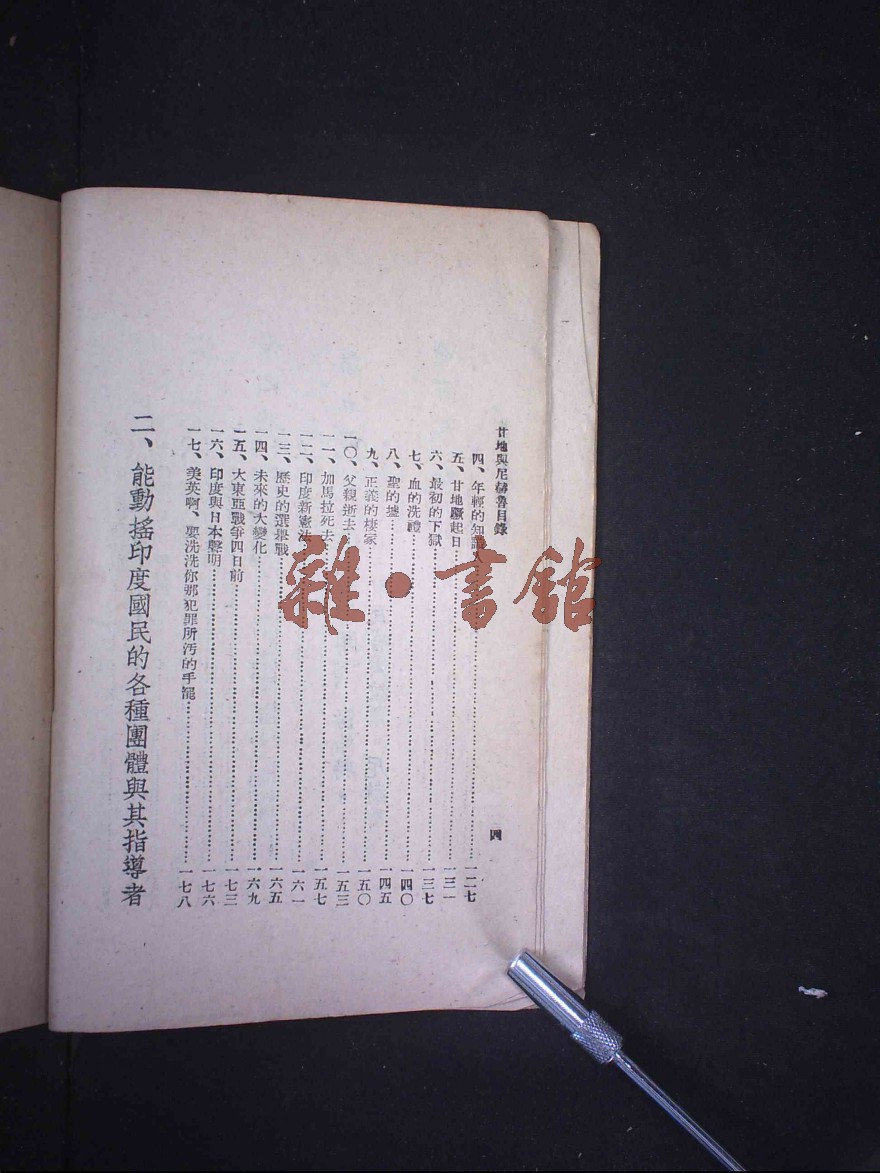 甘地與尼赫魯目錄
四
四、年輕的知識……一二七
五、甘地蹶起日……一三一
六、最初的下獄……一三七
七、血的洗禮……一四〇
八、聖的墟……一四五
九、正義的棲家……一五〇
一〇、父親逝去……一五三
一一、加馬拉死去……一五七
一二、印度新憲法……一六一
一三、歷史的選舉戰……一六五
一四、未來的大變化……一六九
一五、大東亞戰爭四日前……一七三
一六、印度與日本聲明……一七六
一七、美英啊、要洗洗你那犯罪所汚的手罷……一七八
二、能動搖印度國民的各種團體與其指導者
雜·書館